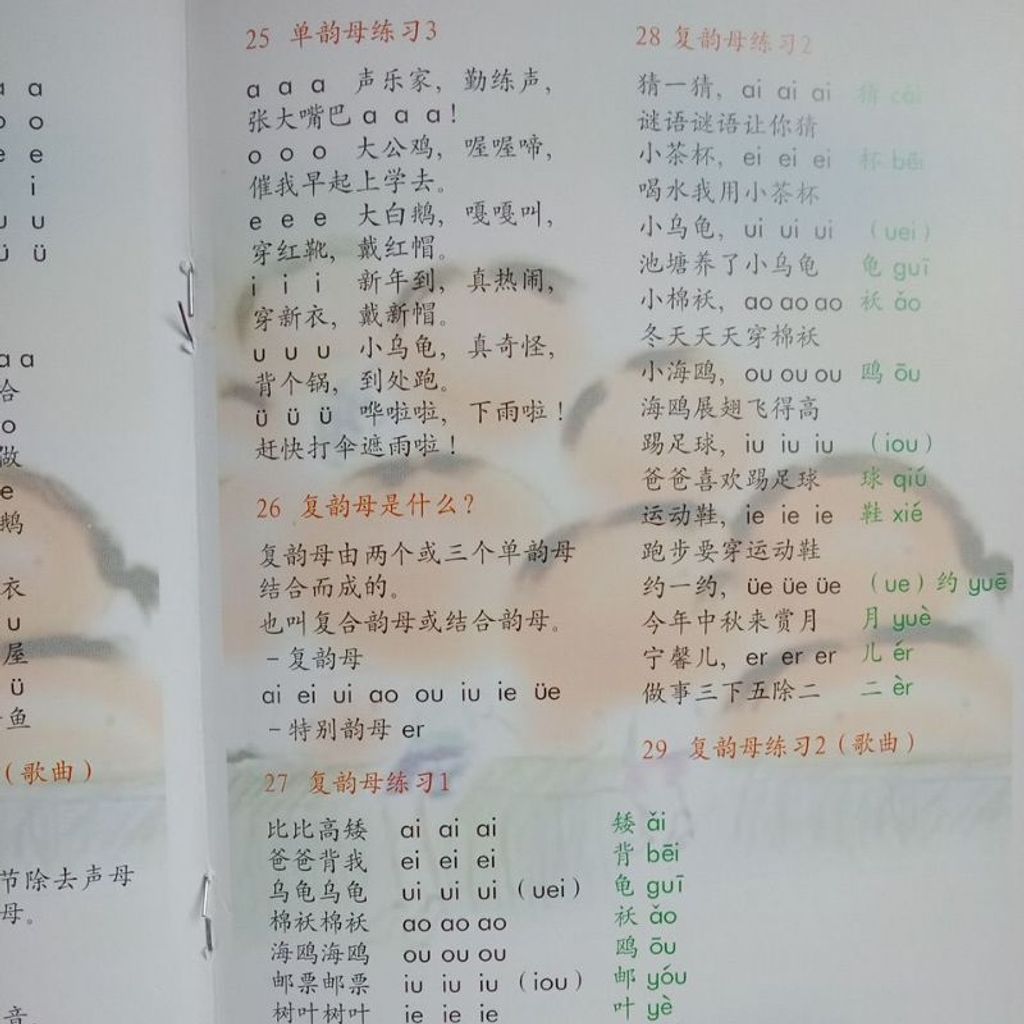 a a
o o
e e
i
u u
ü ü
a a
哈
o
做
e
鹅
衣
u
屋
ü
鱼
（歌曲）
节除去声母
母。
音。
25 单韵母练习3
a a a 声乐家，勤练声，
张大嘴巴 a a a！
o o o 大公鸡，喔喔啼，
催我早起上学去。
e e e 大白鹅，嘎嘎叫，
穿红靴，戴红帽。
i i i 新年到，真热闹，
穿新衣，戴新帽。
u u u 小乌龟，真奇怪，
背个锅，到处跑。
ü ü ü 哗啦啦，下雨啦！
赶快打伞遮雨啦！
26 复韵母是什么？
复韵母由两个或三个单韵母
结合而成的。
也叫复合韵母或结合韵母。
－复韵母
ai ei ui ao ou iu ie üe
－特别韵母 er
27 复韵母练习1
比比高矮 ai ai ai 矮 ǎi
爸爸背我 ei ei ei 背 bēi
乌龟乌龟 ui ui ui（uei） 龟 guī
棉袄棉袄 ao ao ao 袄 ǎo
海鸥海鸥 ou ou ou 鸥 ōu
邮票邮票 iu iu iu（iou） 邮 yóu
树叶树叶 ie ie ie 叶 yè
28 复韵母练习2
猜一猜，ai ai ai 猜 cāi
谜语谜语让你猜
小茶杯，ei ei ei 杯 bēi
喝水我用小茶杯
小乌龟，ui ui ui （uei）
池塘养了小乌龟 龟 guī
小棉袄，ao ao ao 袄 ǎo
冬天天天穿棉袄
小海鸥，ou ou ou 鸥 ōu
海鸥展翅飞得高
踢足球，iu iu iu （iou）
爸爸喜欢踢足球 球 qiú
运动鞋，ie ie ie 鞋 xié
跑步要穿运动鞋
约一约，üe üe üe （ue）约 yuē
今年中秋来赏月 月 yuè
宁馨儿，er er er 儿 ér
做事三下五除二 二 èr
29 复韵母练习2（歌曲）